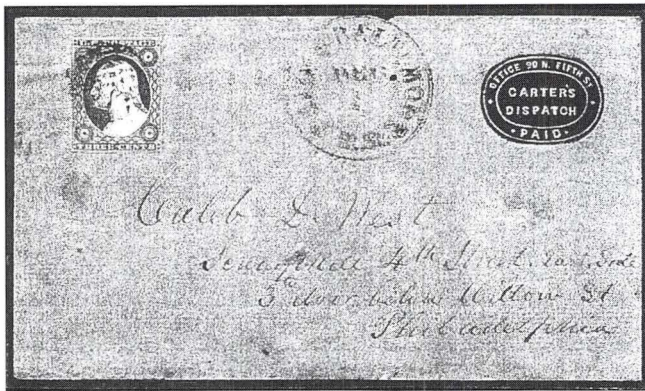 U.S. POSTAGE
THREE CENTS
BALTIMORE
DEC
OFFICE 90 N. FIFTH ST
CARTER'S
DISPATCH
PAID
Caleb D. West
4th Street East Side
5th door below Willow St
Philadelphia